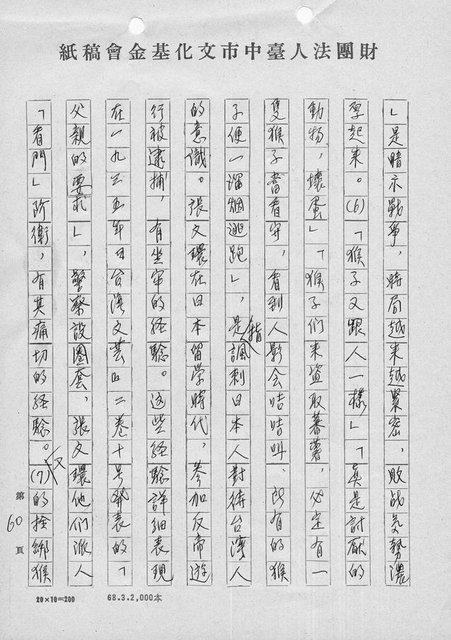 財團法人臺中市文化基金會稿紙
」是暗示戰爭,時局越來越緊密,敗战氣勢濃
厚起來。(6)「猴子又跟人一樣」「真是討厭的
動物,壞蛋」「猴子們來盜取蕃薯,必定有一
隻猴子當看守,看到人影会咭咭叫,所有的猴
子便一溜烟逃跑」,是指諷刺日本人對待台灣人
的意識。張文環在日本留學時代,參加反帝遊
行被逮捕,有坐牢的經驗。這些經驗詳細表現
在一九三五年日台灣文芸四二卷十号發表的「
父親的要求」,警察設圈套,張文環他們派人
「看門」防衛,有其痛切的經驗。(7)反的捨綁猴
第60頁
20×10=200
68.3.2,000本